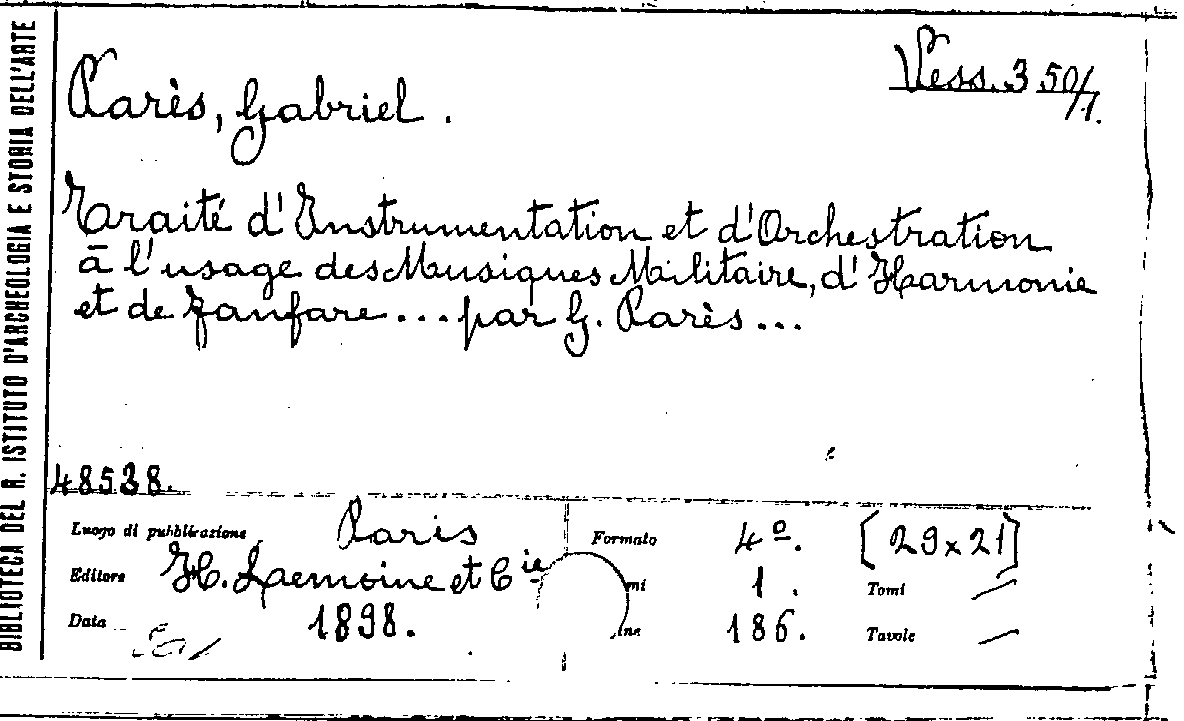 BIBLIOTECA DEL R. ISTITUTO D'ARCHEOLOGIA E STORIA DELL'ARTE
Vess. 350/1.
Parès, Gabriel.
Traité d'Instrumentation et d'Orchestration
à l'usage des Musiques Militaire, d'Harmonie
et de Fanfare... par G. Parès...
48538.
Luogo di pubblicazione Paris Formato 4º. [29x21]
Editore H. Laemoine et Cie mi 1. Tomi —
Data 1898. ine 186. Tavole —